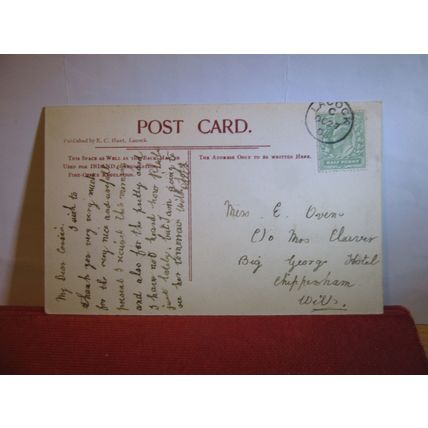 POST CARD.
Published by E. C. Hunt, Lacock.
THIS SPACE AS WELL AS THE BACK MAY BE
USED FOR INLAND COMMUNICATION.
POST OFFICE REGULATION.
THE ADDRESS ONLY TO BE WRITTEN HERE.
LACOCK
C
HALF PENNY
Miss E. Owens
C/o Mrs
Big George Hotel
Chippenham
Wilts.
My Dear Cousin,
I wish to
thank you very very much
for the very nice and useful
present I received this morning
and also for the pretty card
I have not heard how
just lately but I am going to
see her tomorrow With